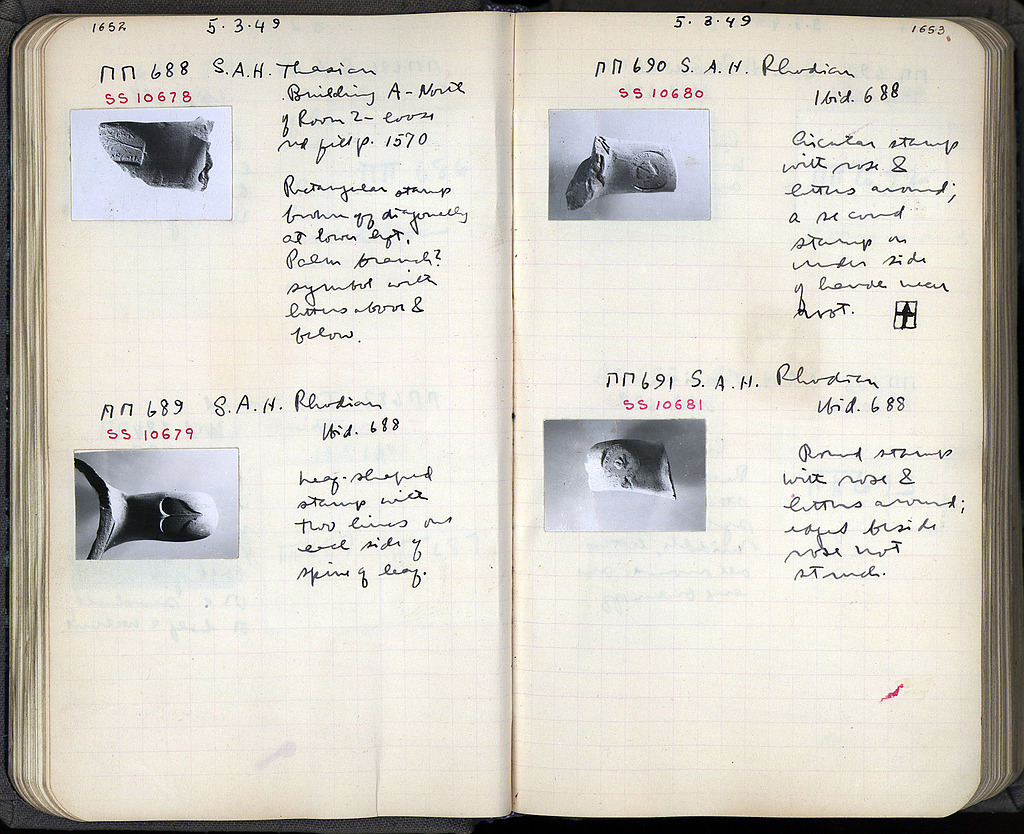 1652
5·3·49
ΠΠ 688 S.A.H. Thasian
SS 10678
Building A - North
of Room 2 - loose
red fill p. 1570
Rectangular stamp
broken off diagonally
at lower left.
Palm branch?
symbol with
letters above &
below.
ΠΠ 689 S.A.H. Rhodian
SS 10679
Ibid. 688
Leaf-shaped
stamp with
two lines on
each side of
spine of leaf.
5·3·49
1653
ΠΠ 690 S.A.H. Rhodian
SS 10680
Ibid. 688
Circular stamp
with rose &
letters around;
a second
stamp on
under side
of handle near
root.
ΠΠ 691 S.A.H. Rhodian
SS 10681
Ibid. 688
Round stamp
with rose &
letters around;
edges beside
rose not
struck.